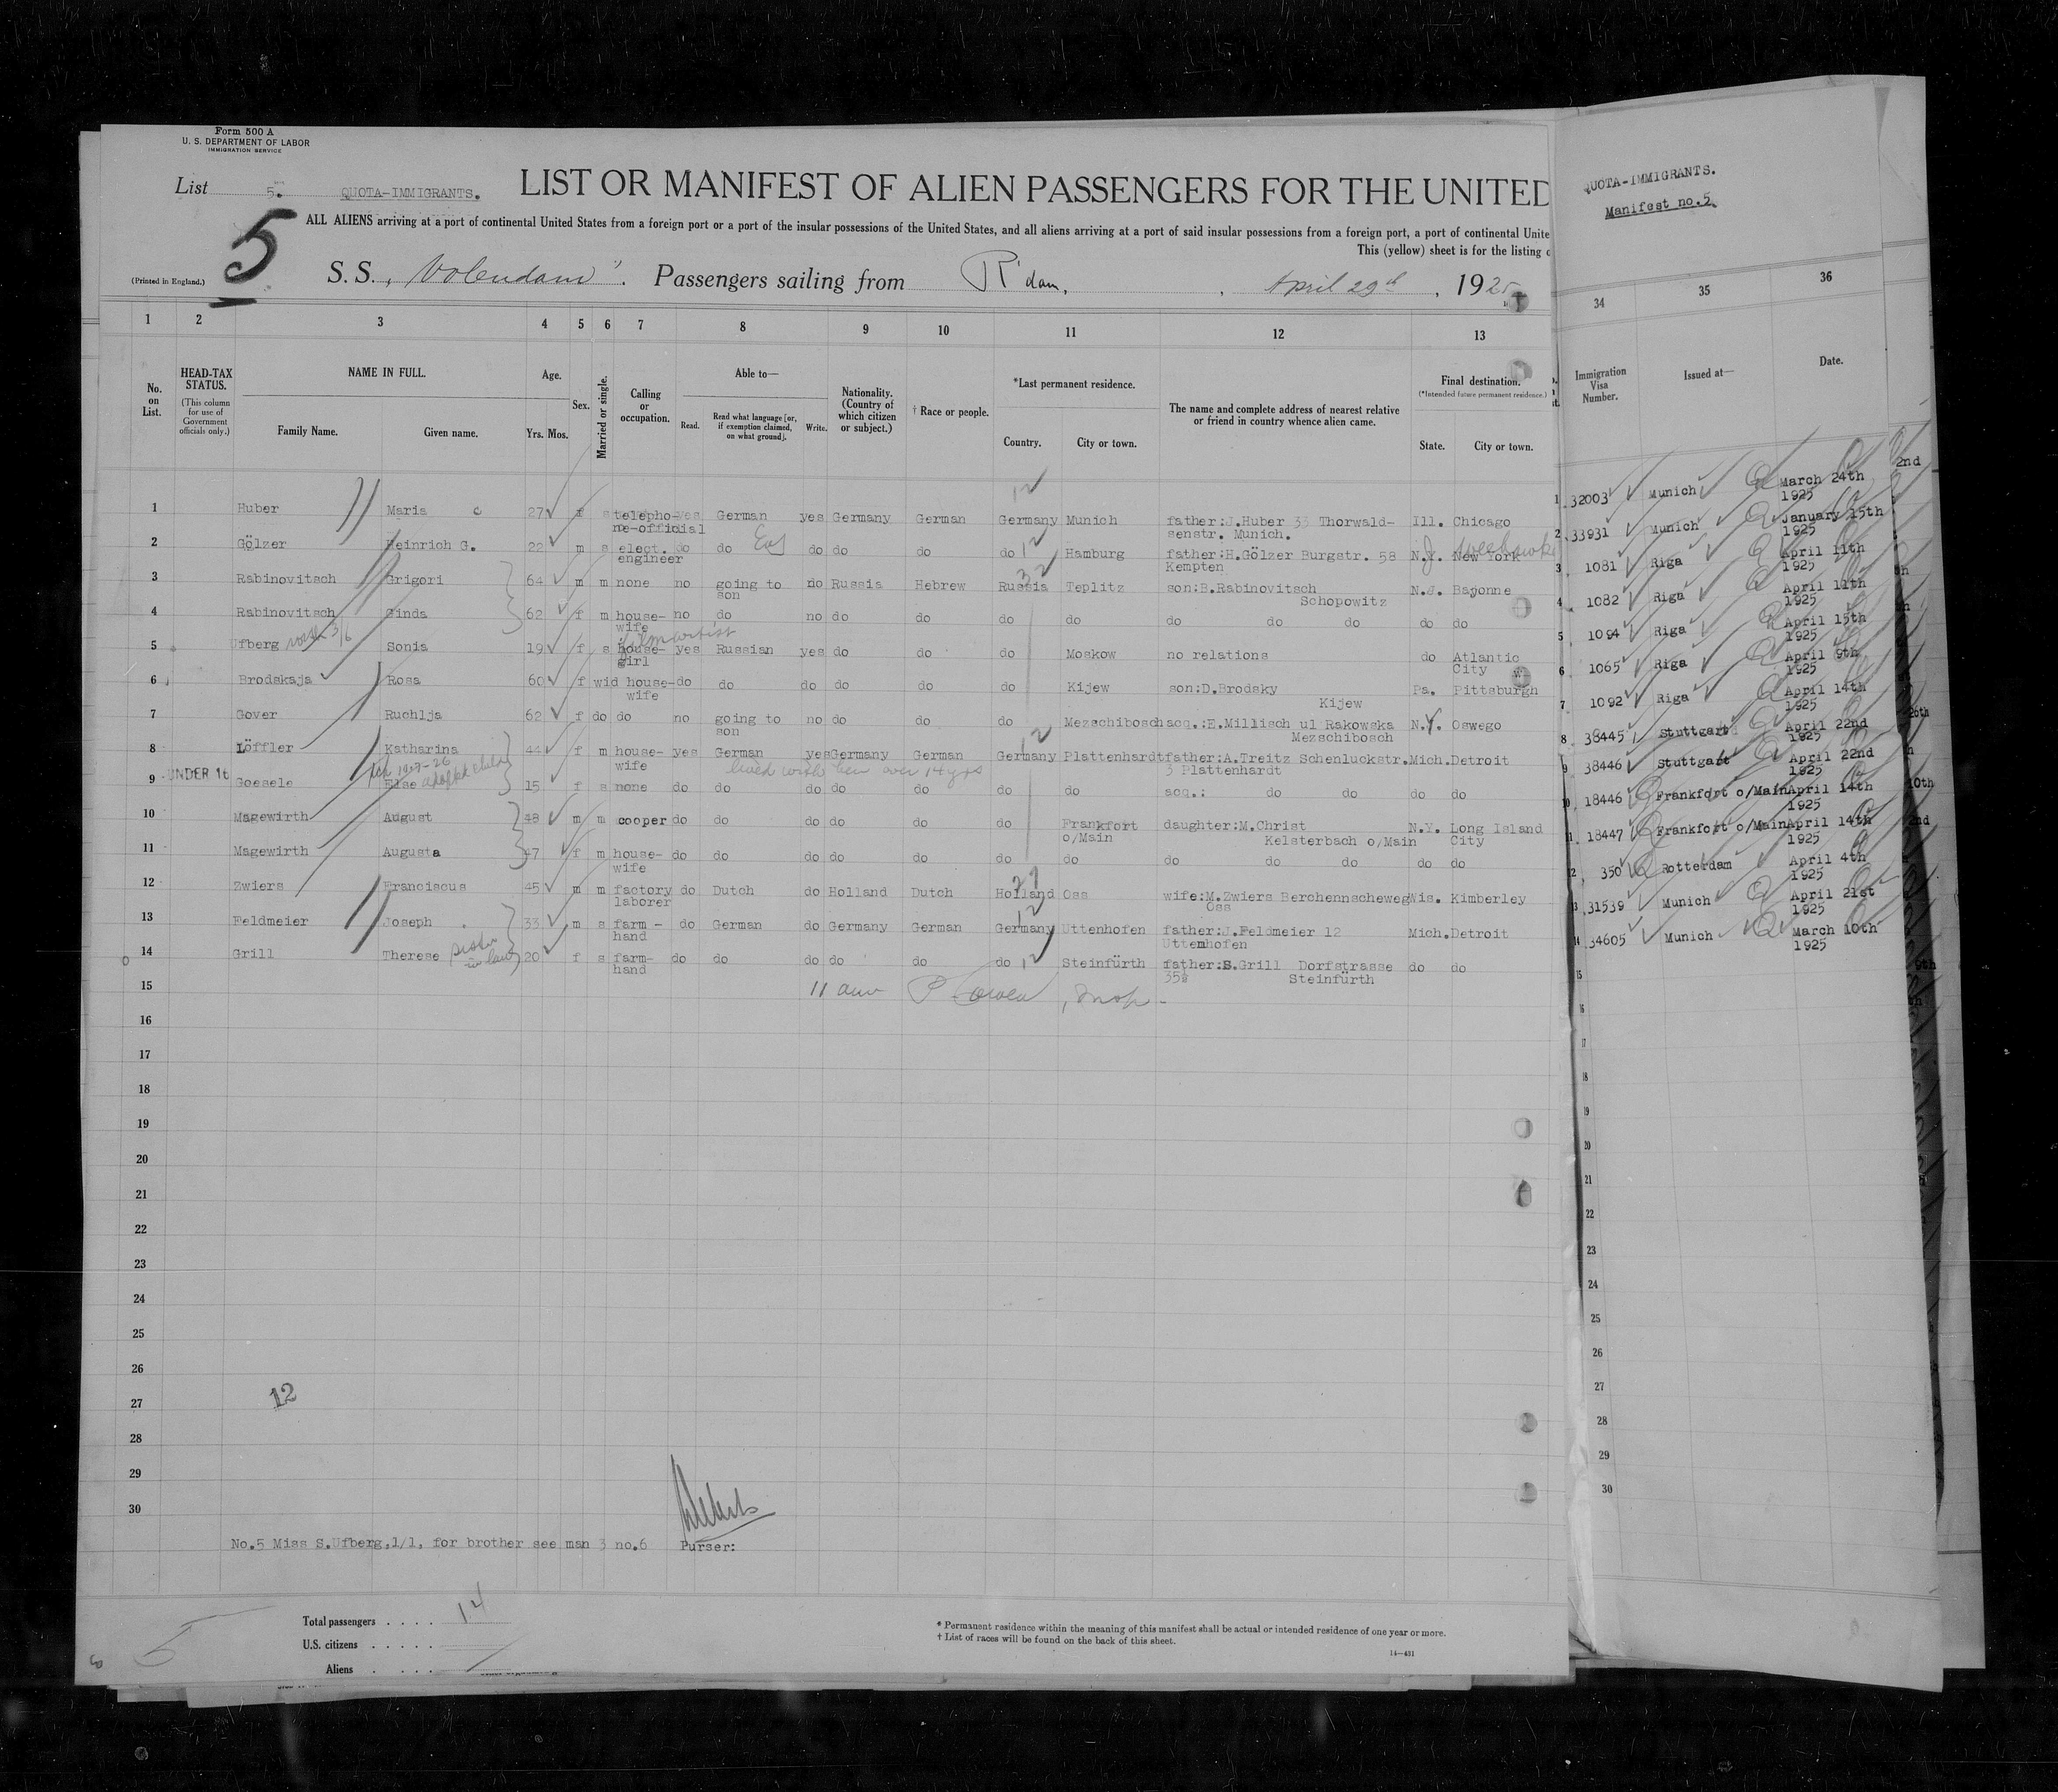 Form 500 A
U. S. DEPARTMENT OF LABOR
IMMIGRATION SERVICE
List 5. QUOTA-IMMIGRANTS. LIST OR MANIFEST OF ALIEN PASSENGERS FOR THE UNITED
5
ALL ALIENS arriving at a port of continental United States from a foreign port or a port of the insular possessions of the United States, and all aliens arriving at a port of said insular possessions from a foreign port, a port of continental Unite
This (yellow) sheet is for the listing o
(Printed in England.)
S.S. „Volendam". Passengers sailing from R'dam, April 29th, 1925
1 2 3 4 5 6 7 8 9 10 11 12 13
No. on List.
HEAD-TAX STATUS.
(This column for use of Government officials only.)
NAME IN FULL.
Family Name. Given name.
Age.
Yrs. Mos.
Sex.
Married or single.
Calling or occupation.
Able to—
Read. Read what language [or, if exemption claimed, on what ground]. Write.
Nationality. (Country of which citizen or subject.)
† Race or people.
*Last permanent residence.
Country. City or town.
The name and complete address of nearest relative or friend in country whence alien came.
Final destination.
(*Intended future permanent residence.)
State. City or town.
1 Huber Maria c 27 f s telepho- yes German yes Germany German Germany Munich father:J.Huber 33 Thorwald- Ill. Chicago
ne-official senstr. Munich.
2 Gölzer Heinrich G. 22 m s elect. do do do do do do Hamburg father:H.Gölzer Burgstr. 58 N.Y. New York
engineer Kempten
3 Rabinovitsch Grigori 64 m m none no going to no Russia Hebrew Russia Teplitz son:B.Rabinovitsch N.J. Bayonne
son Schopowitz
4 Rabinovitsch Ginda 62 f m house- no do no do do do do do do do do do
wife
film artist
5 Ufberg 3/6 Sonia 19 f s house- yes Russian yes do do do Moskow no relations do Atlantic
girl City
6 Brodskaja Rosa 60 f wid house- do do do do do do Kijew son:D.Brodsky Pa. Pittsburgh
wife Kijew
7 Gover Ruchlja 62 f do do no going to no do do do Mezschibosch acq.:E.Millisch ul Rakowska N.Y. Oswego
son Mezschibosch
8 Löffler Katharina 44 f m house- yes German yes Germany German Germany Plattenhardt father:A.Treitz Schenluckstr. Mich. Detroit
wife lived with her over 14 yrs 3 Plattenhardt
adopted child
9 UNDER 16 Goesele Else 15 f s none do do do do do do do acq.: do do do do
10 Magewirth August 48 m m cooper do do do do do Frankfort daughter:M.Christ N.Y. Long Island
o/Main Kelsterbach o/Main City
11 Magewirth Augusta 47 f m house- do do do do do do do do do do do do
wife
12 Zwiers Franciscus 45 m m factory do Dutch do Holland Dutch Holland Oss wife:M.Zwiers Berchennscheweg Wis. Kimberley
laborer Oss
13 Feldmeier Joseph 33 m s farm - do German do Germany German Germany Uttenhofen father:J.Feldmeier 12 Mich. Detroit
hand Uttenhofen
14 Grill Therese (sister in law) 20 f s farm- do do do do do do Steinfürth father:S.Grill Dorfstrasse do do
hand 35½ Steinfürth
15
16
17
18
19
20
21
22
23
24
25
26
27
28
29
30
12
No.5 Miss S.Ufberg,1/1, for brother see man 3 no.6 Purser:
Total passengers . . . . 14
U.S. citizens . . . . .
Aliens . . . .
5
* Permanent residence within the meaning of this manifest shall be actual or intended residence of one year or more.
† List of races will be found on the back of this sheet.
14—431
QUOTA-IMMIGRANTS.
Manifest no.5.
34 35 36
Immigration Visa Number. Issued at— Date.
1 32003 Munich March 24th 1925
2 33931 Munich January 15th 1925
3 1081 Riga April 11th 1925
4 1082 Riga April 11th 1925
5 1094 Riga April 15th 1925
6 1065 Riga April 9th 1925
7 1092 Riga April 14th 1925
8 38445 Stuttgart April 22nd 1925
9 38446 Stuttgart April 22nd 1925
10 18446 Frankfort o/Main April 14th 1925
11 18447 Frankfort o/Main April 14th 1925
12 350 Rotterdam April 4th 1925
13 31539 Munich April 21st 1925
14 34605 Munich March 10th 1925
15
16
17
18
19
20
21
22
23
24
25
26
27
28
29
30